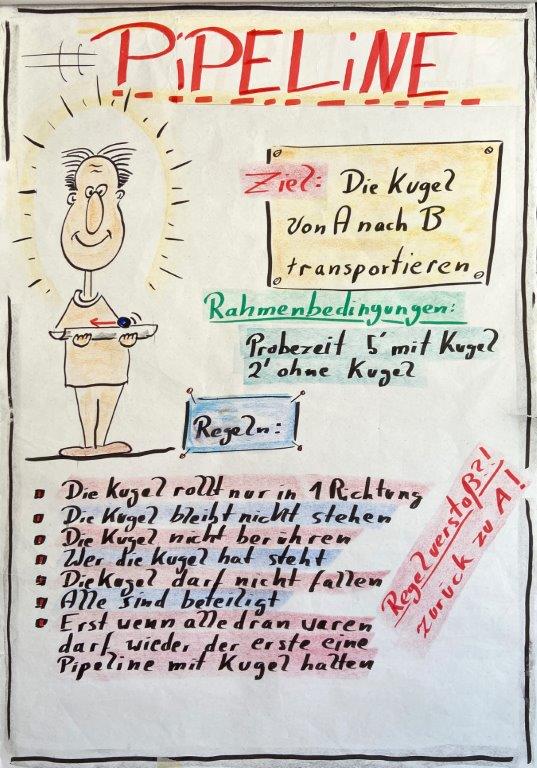 PiPELiNE
Ziel: Die Kugel
von A nach B
transportieren
Rahmenbedingungen:
Probezeit 5' mit Kugel
2' ohne Kugel
Regeln:
Die Kugel rollt nur in 1 Richtung
Die Kugel bleibt nicht stehen
Die Kugel nicht berühren
Wer die Kugel hat steht
Die Kugel darf nicht fallen
Alle sind beteiligt
Erst wenn alle dran waren
darf wieder der erste eine
Pipeline mit Kugel halten
Regelverstoß?!
Zurück zu A!